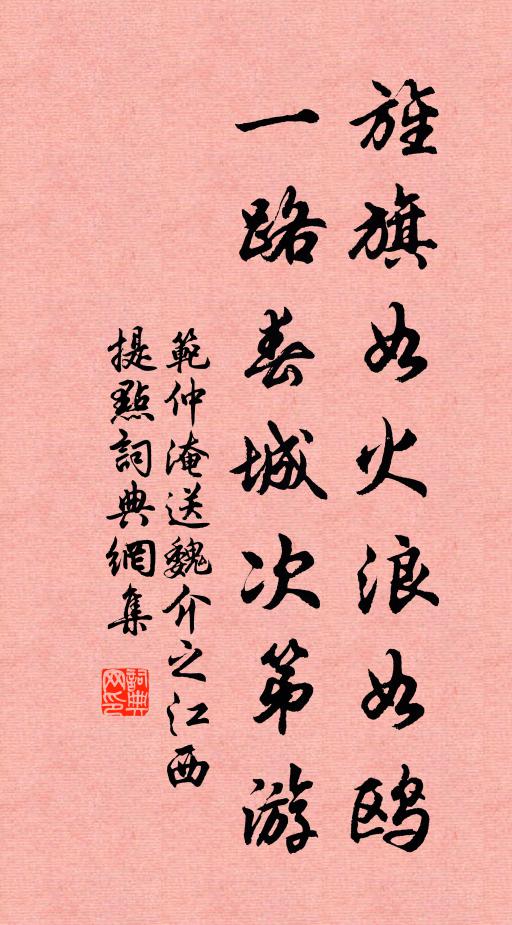 旌旗如火浪如鸥
一路春城次第游
範仲淹送魏介之江西
提點詞典網集
詞典
网印